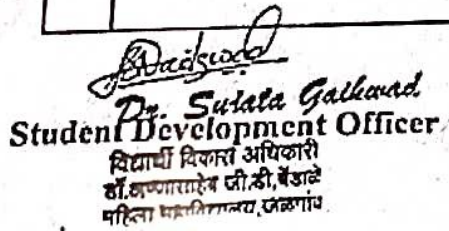 Dr. Sujata Gaikwad
Student Development Officer
विद्यार्थी विकास अधिकारी
डॉ.अण्णासाहेब जी.डी.बेंडाळे
महिला महाविद्यालय, जळगांव